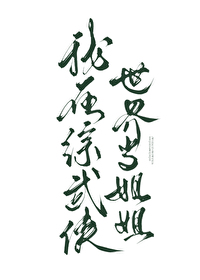 我在综武侠
世界当姐姐